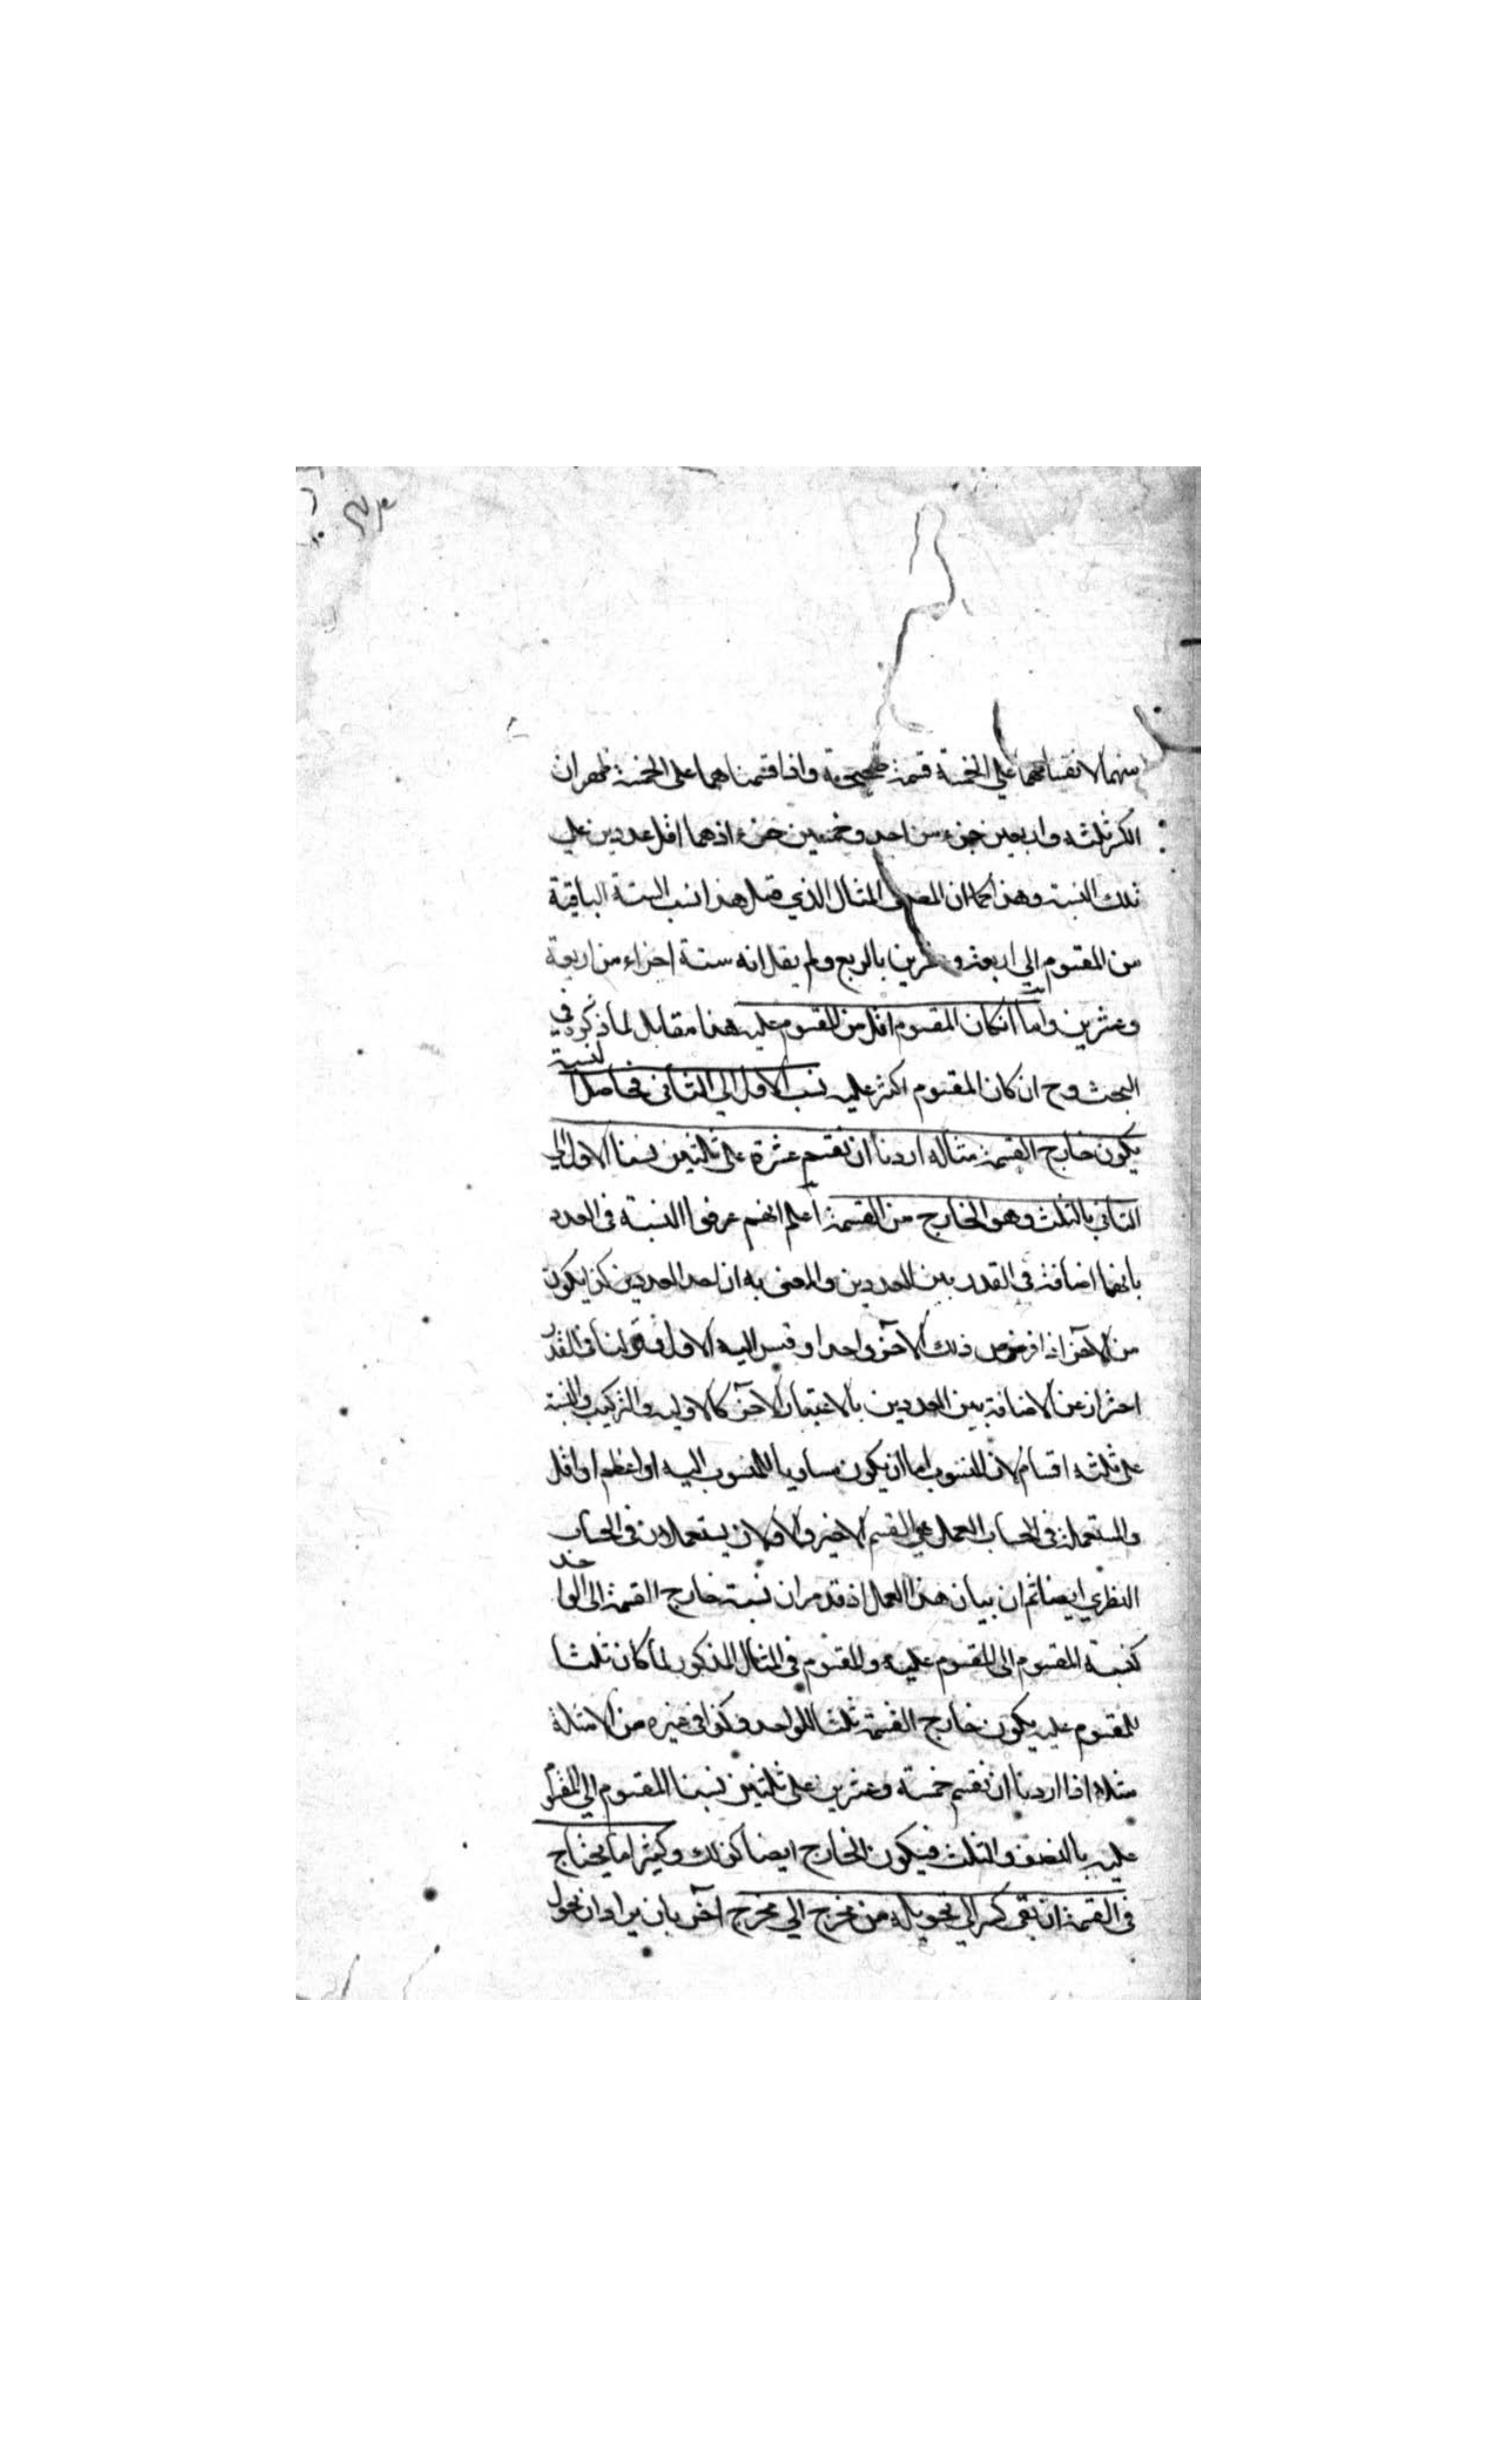 منهما لانقسامهما على الخمسة قسمة صحيحة واذا قسمناهما على الخمسة ظهر ان
الكسر ثلثة واربعين جزء من احد وخمسين جزء اذ هما اقل عددين على
تلك النسبة وهذا كما ان المصـ في المثال الذي قبل هذا نسب الستة الباقية
من المقسوم الى اربعة وعشرين بالربع ولم يقل انه ستة اجزاء من اربعة
وعشرين واما ان كان المقسوم اقل من المقسوم عليه هذا مقابل لما ذكره في
البحث وح ان كان المقسوم اكثر عليه نسب الاول الى الثاني فحاصل النسبة
يكون خارج القسمة مثاله اردنا ان نقسم عشرة على ثلثين نسبنا الاول الى
الثاني بالثلث وهو الخارج من القسمة اعلم انهم عرفوا النسبة في العدد
بانهما اضافة في القدر بين العددين والمعنى به ان احد العددين كم يكون
من الآخر اذا فرض ذلك الآخر واحدا وقيس اليه الاول وقولنا في القدر
احتراز عن الاضافة بين العددين بالاعتبار الآخر كالاولية والتركيب والنسبة
على ثلثة اقسام لان المنسوب اما ان يكون مساويا للمنسوب اليه او اعظم او اقل
والمستعملة في الحساب العملي هي القسم الاخير والاولان يستعملان في الحساب
النظري ايضا ثم ان بيان هذا العمل اذ قد مر ان نسبة خارج القسمة الى الواحد
كنسبة المقسوم الى المقسوم عليه والمقسوم في المثال المذكور لما كان ثلثا
للمقسوم عليه يكون خارج القسمة ثلثا للواحد وكذا في غيره من الامثلة
مثلا اذا اردنا ان نقسم خمسة وعشرين على ثلثين نسبنا المقسوم الى المقسوم
عليه بالنصف والثلث فيكون الخارج ايضا كذلك وكثيرا ما يحتاج
في القسمة ان بقى كسر الى تحويله من مخرج الى مخرج آخر بان يراد ان نحول